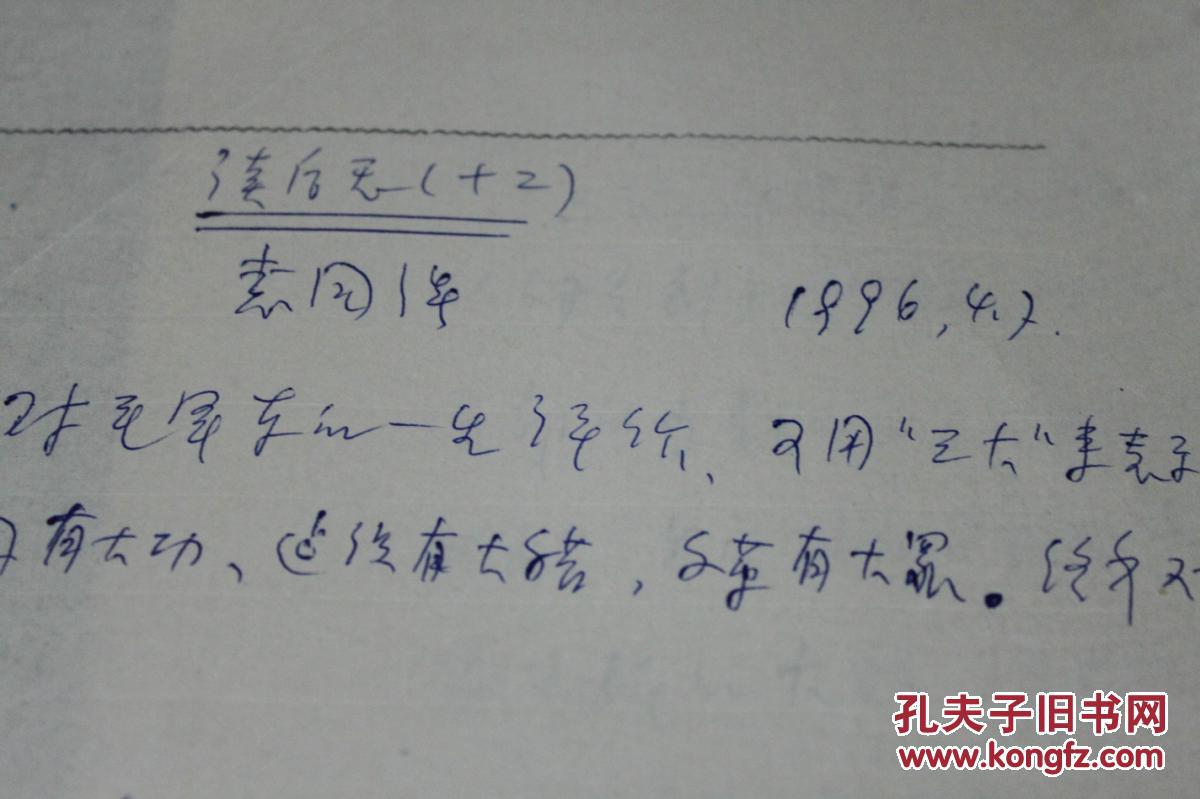 读后感(十二)
1996,4.7.
对毛泽东的一生评价、可用“三大“来表示
有大功、建设有大错，文革有大罪。终来对
孔夫子旧书网
www.kongfz.com